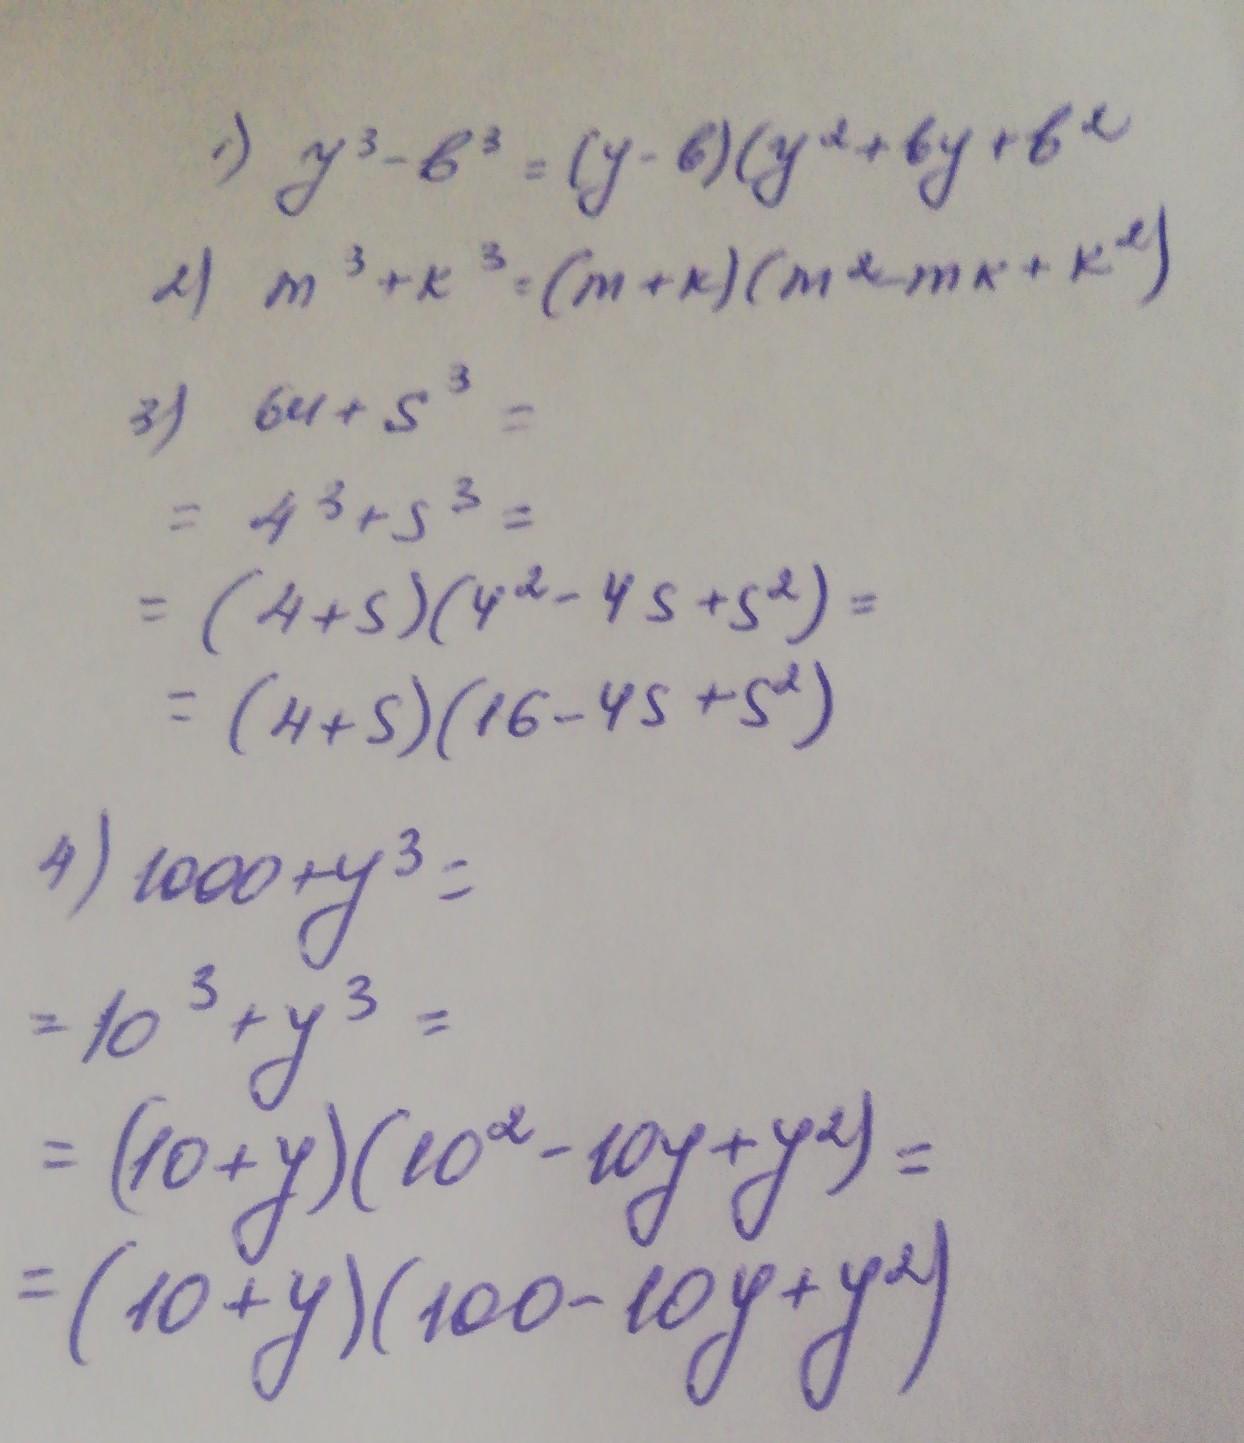 1) y³-b³=(y-b)(y²+by+b²
2) m³+k³=(m+k)(m²-mk+k²)
3) 64+s³=
= 4³+s³=
= (4+s)(4²-4s+s²)=
= (4+s)(16-4s+s²)
4) 1000+y³=
=10³+y³=
= (10+y)(10²-10y+y²)=
= (10+y)(100-10y+y²)